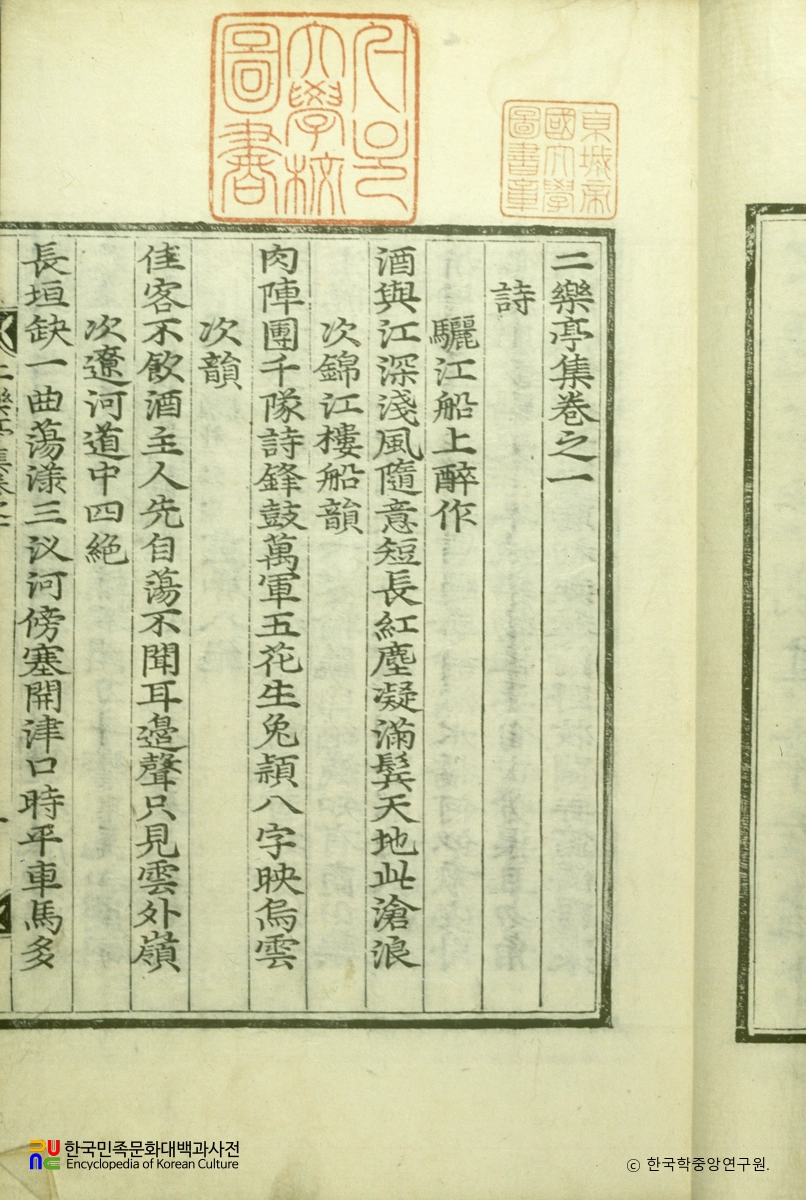 二樂亭集卷之一
詩
驪江船上醉作
酒與江深淺風隨意短長紅塵凝滿鬂天地此滄浪
次錦江樓船韻
肉陣團千隊詩鋒鼓萬軍五花生兔穎八字映烏雲
次韻
佳客不飮酒主人先自蕩不聞耳邉聲只見雲外嶺
次遼河道中四絶
長垣缺一曲蕩漾三汊河傍塞開津口時平車馬多
京城帝
國大學
圖書章
大學校
圖書
한국민족문화대백과사전
Encyclopedia of Korean Culture
ⓒ 한국학중앙연구원.